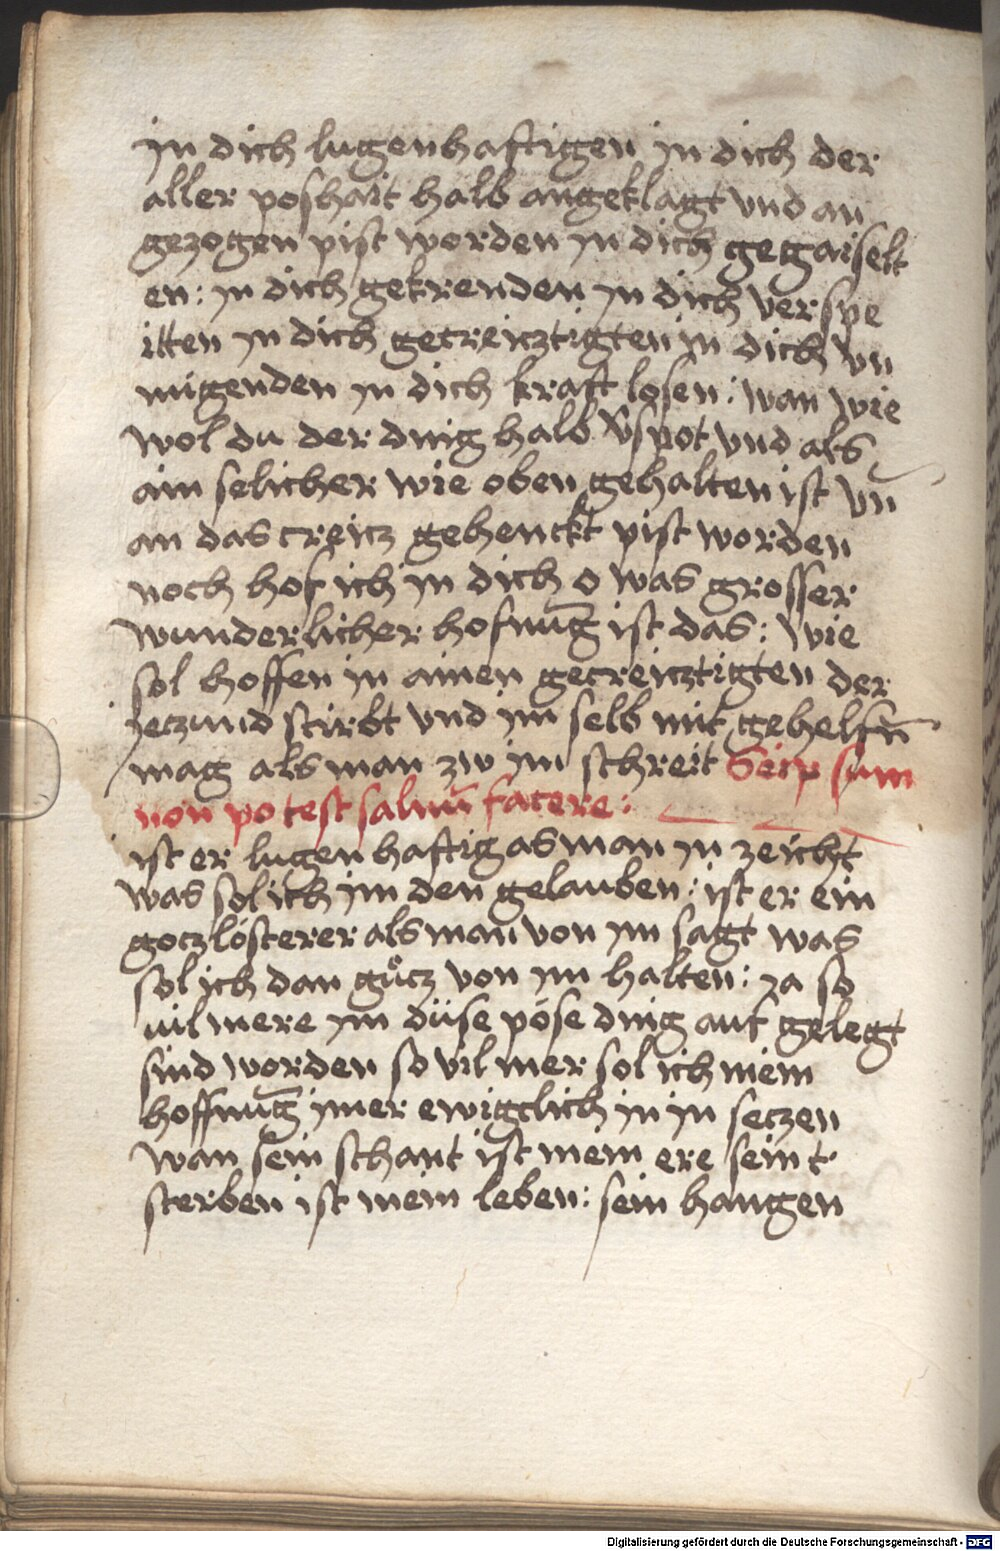 in dich lugenhaftigen in dich der
aller poshait halb angeklagt vnd an
gezogen pist worden in dich gegaiselt
en: in dich gekrenden in dich verspe
itten in dich gecreicztigten in dich vn
mügenden in dich kraft losen: wan wie
wol du der ding halb v̄spot vnd als
ain selicher wie oben gehalten ist vn̄
an das creicz gehenckt pist worden
noch hof ich in dich o was grosser
wunderlicher hofnūg ist das: wie
sol hoffen in ainen gecreicztigten der
jeczund stirbt vnd im selb nit gehelfn̄
mag als man zw im schreit Seip sum
non potest saluū facere:
ist er lugenhaftig as man in zeicht
was sol ich im den gelauben: ist er ein
goczlösterer als man von im sagt was
sol ich dan gůcz von im halten: ja so
uil mere im düse pöse ding auf gelegt
sind worden so vil mer sol ich mein
hoffnūg imer ewigclich in in seczen
wan sein schant ist mein ere sein t
sterben ist mein leben: sein hangen
Digitalisierung gefördert durch die Deutsche Forschungsgemeinschaft - DFG